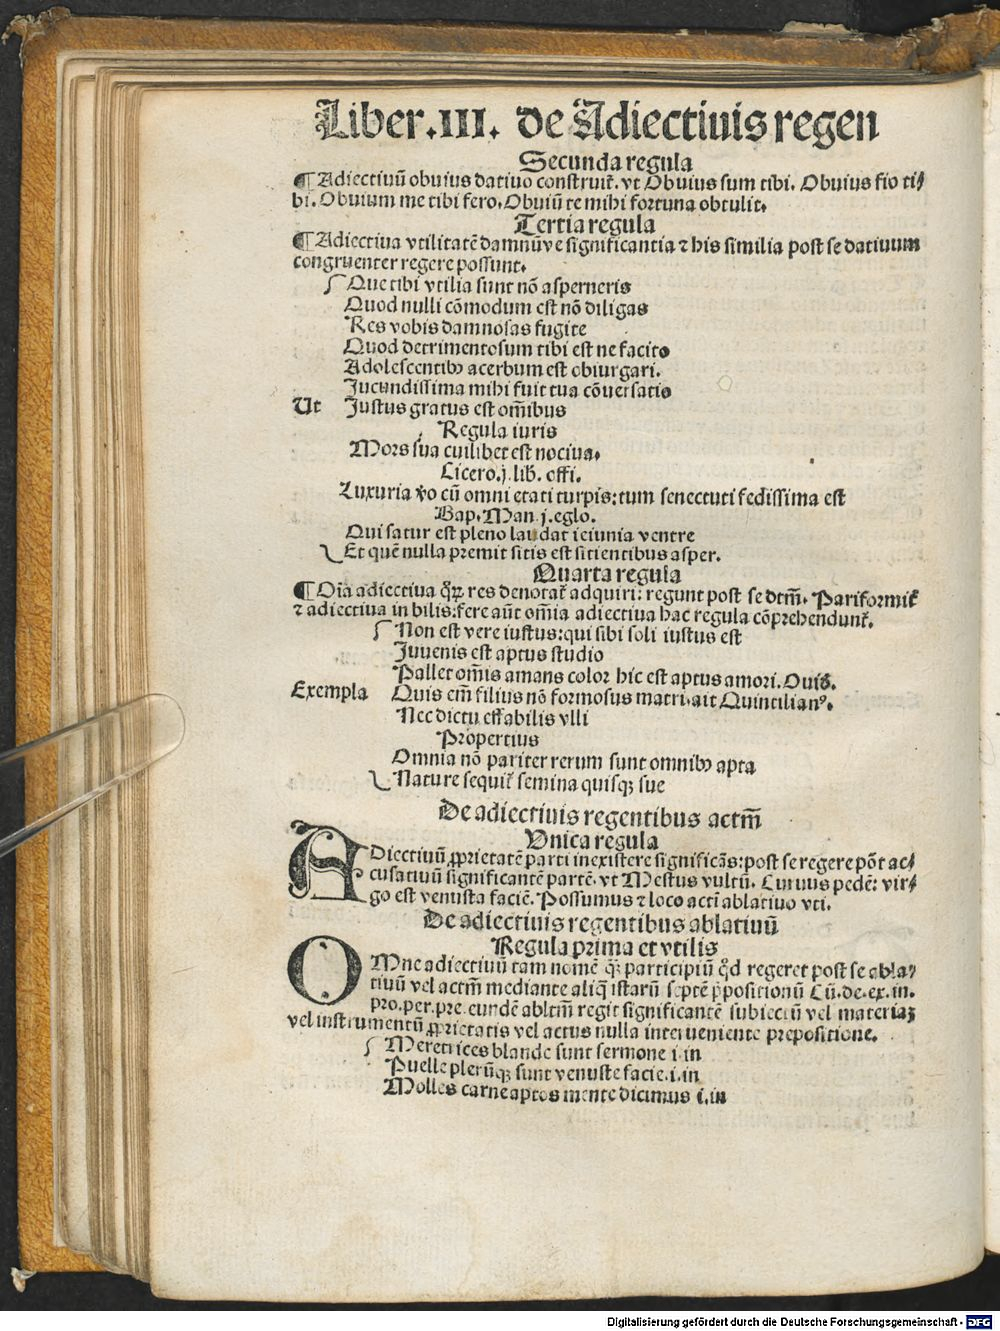 Liber.III. de Adiectiuis regen
Secunda regula
¶ Adiectiuū obuius datiuo construit̄. vt Obuius sum tibi. Obuius fio ti/
bi. Obuium me tibi fero. Obuiū te mihi fortuna obtulit.
Tertia regula
¶ Adiectiua vtilitatē damnūve significantia ⁊ his similia post se datiuum
congruenter regere possunt.
Que tibi vtilia sunt nō asperneris
Quod nulli cōmodum est nō diligas
Res vobis damnosas fugite
Quod detrimentosum tibi est ne facito
Adolescentibꝰ acerbum est obiurgari.
Jucundissima mihi fuit tua cōuersatio
Ut Justus gratus est om̄ibus
Regula iuris
Mors sua cuilibet est nociua.
Cicero.j.lib. offi.
Luxuria v̄o cū omni etati turpis: tum senectuti fedissima est
Bap. Man.j.eglo.
Qui satur est pleno laudat ieiunia ventre
Et quē nulla premit sitis est sitientibus asper.
Quarta regula
¶ Oīa adiectiua qͥꝫ res denotat̄ adquiri: regunt post se dtm̄. Pariformit̄
⁊ adiectiua in bilis: fere aūt om̄ia adiectiua hac regula cōprehendunt̄.
Non est vere iustus: qui sibi soli iustus est
Juuenis est aptus studio
Pallet om̄is amans color hic est aptus amori. Ouid̄.
Exempla Quis em̄ filius nō formosus matri. ait Quintilianꝰ.
Nec dictu effabilis vlli
Propertius
Omnia nō pariter rerum sunt omnibꝰ apta
Nature sequit̄ semina quisqꝫ sue
De adiectiuis regentibus actm̄
Vnica regula
ADiectiuū ꝓprietatē parti inexistere significās: post se regere pōt ac/
cusatiuū significantē partē. vt Mestus vultū. Curuus pedē: vir/
go est venusta faciē. Possumus ⁊ loco actī ablatiuo vti.
De adiectiuis regentibus ablatiuū
Regula prima et vtilis
OMne adiectiuū tam nomē qͣꝫ participiū qd̄ regeret post se abla/
tiuū vel actm̄ mediante aliqͣ istarū septē p̄positionū Cū. de. ex. in.
pro. per. pre. eundē abltm̄ regit significantē subiectū vel materiaꝫ
vel instrumentū ꝓprietatis vel actus nulla interueniente prepositione.
Meretrices blande sunt sermone .i. in
Puelle plerūqꝫ sunt venuste facie .i. in
Molles carne aptos mente dicimus .i. in
Digitalisierung gefördert durch die Deutsche Forschungsgemeinschaft - DFG